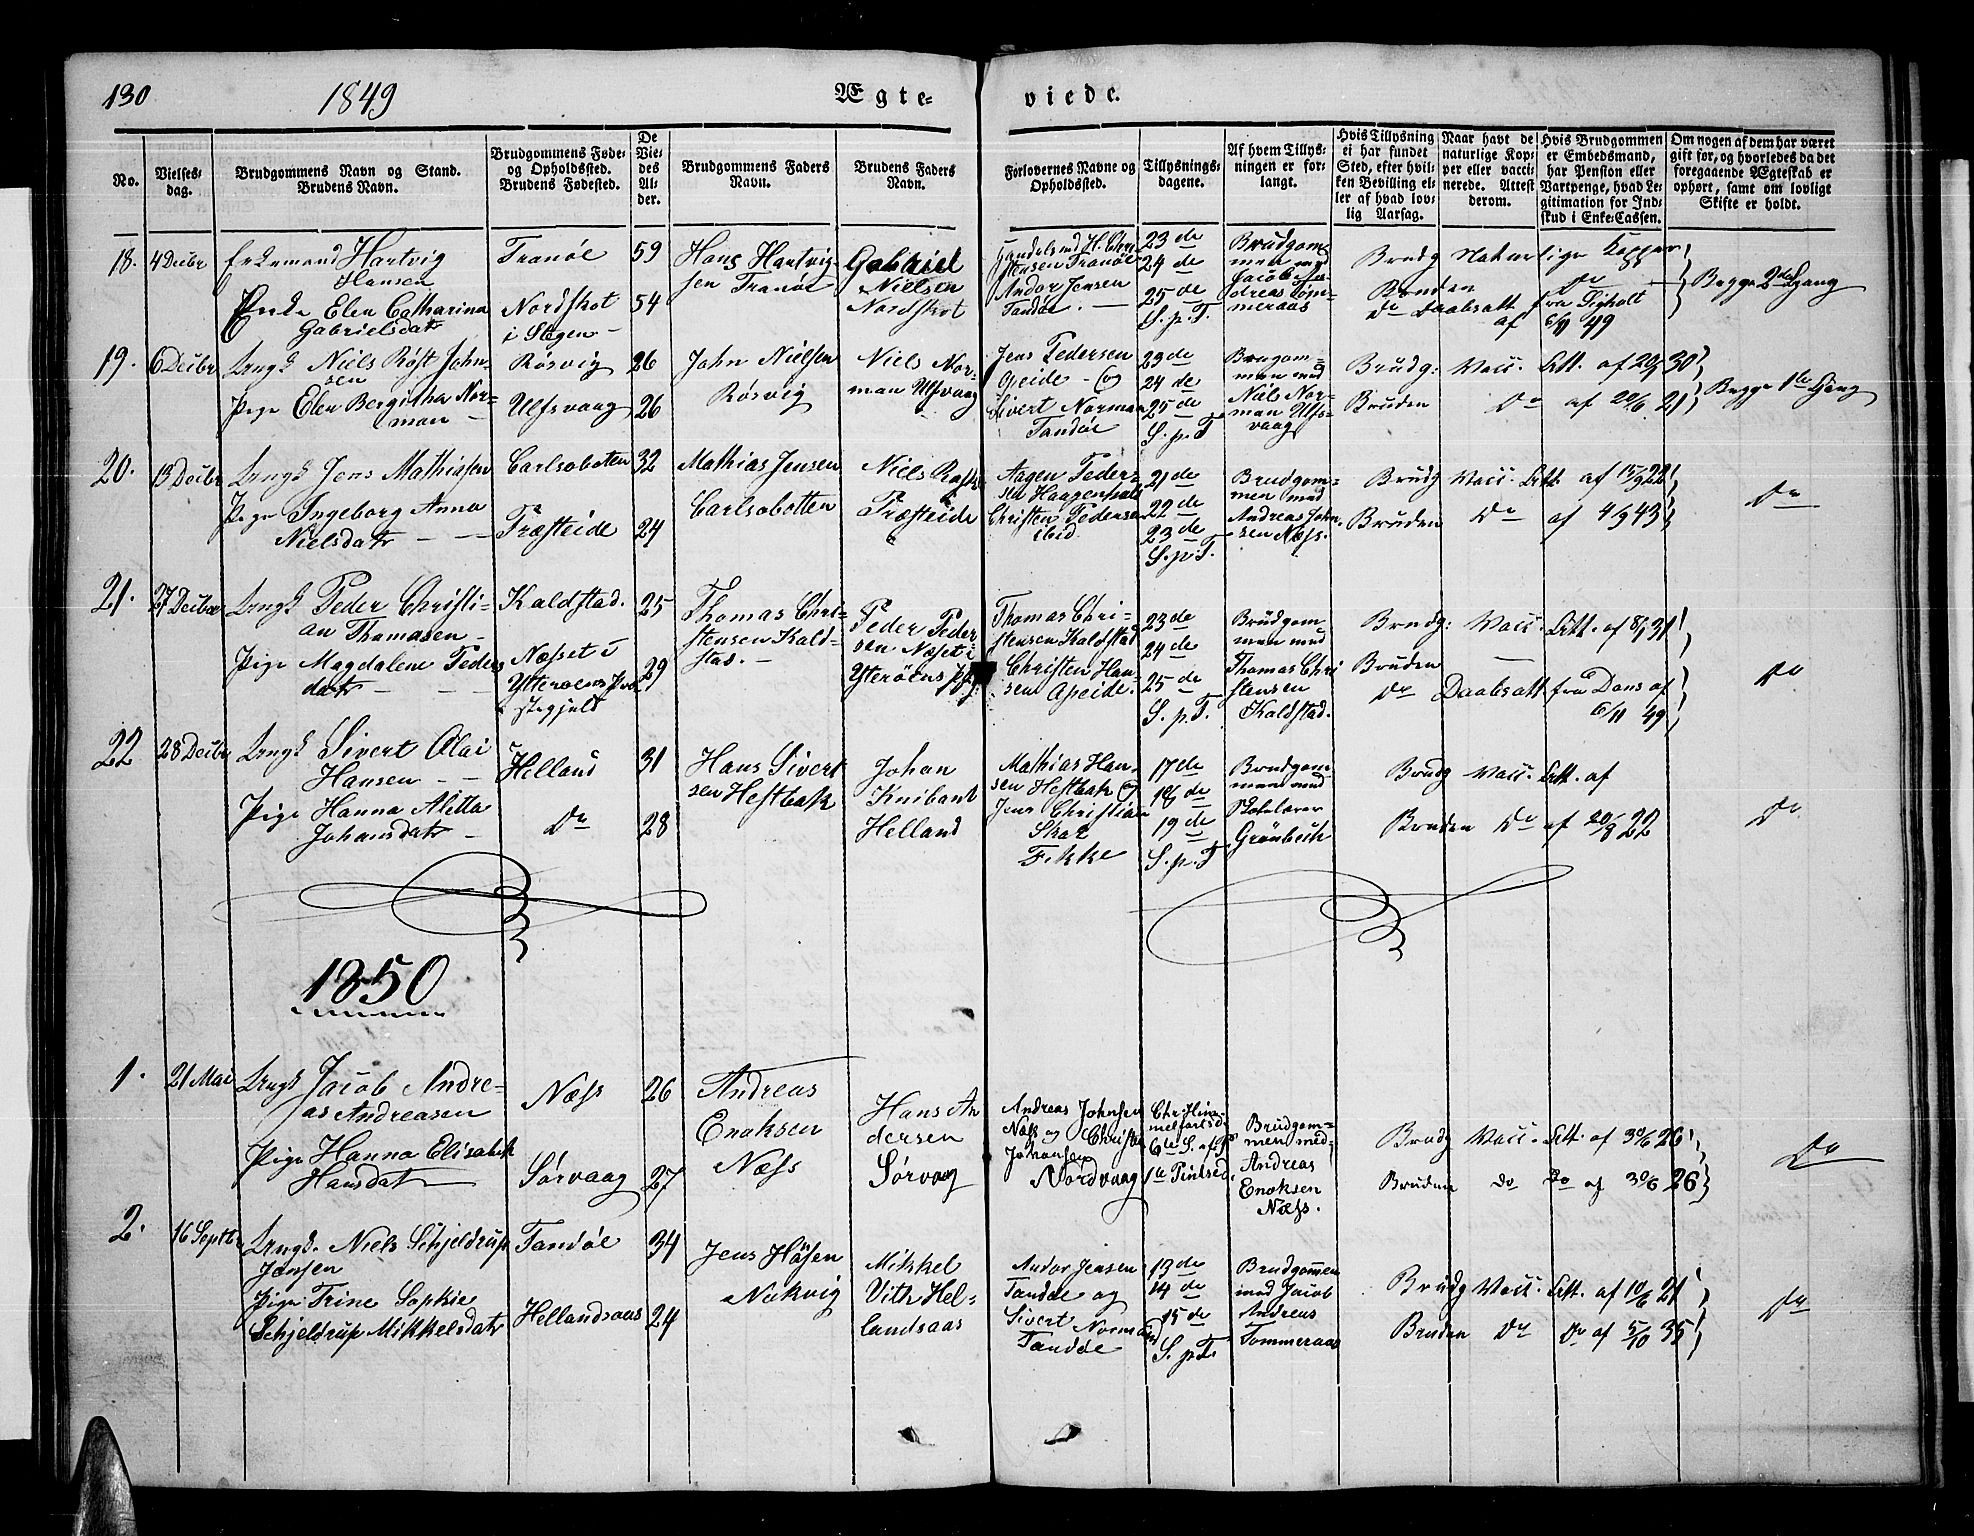 130
1849
Ægte-
viede.
No.
Vielses-
dag.
Brudgommens Navn og Stand.
Brudens Navn.
Brudgommens Føde-
og Opholdssted.
Brudens Fødested.
De
Vie-
des
Al-
der.
Brudgommens Faders
Navn.
Brudens Faders
Navn.
Forlovernes Navne og
Opholdssted.
Tillysnings-
dagene.
Af hvem Tillys-
ningen er for-
langt.
Hvis Tillysning
ei har fundet
Sted, efter hvil-
ken Bevilling el-
ler af hvad lov-
lig Aarsag.
Naar havt de
naturlige Kop-
per eller vacci-
nerede. Attest
derom.
Hvis Brudgommen
er Embedsmand,
har Pension eller
Vartpenge, hvad Le-
gitimation for Ind-
skud i Enke-Cassen.
Om nogen af dem har været
gift før, og hvorledes da det
foregaaende Ægteskab er
ophørt, samt om lovligt
Skifte er holdt.
18.
4 Decbr
Enkemand Hartvig
Hansen
Enke Elen Catharina
Gabrielsdatr
Tranöe
Nordskot
i Stegen
59
54
Hans Hartvig-
sen Tranöe
Gabriel
Nielsen
Nordskot
Handelsmd H. Chri-
stensen Tranöe
Andor Jensen
Tandöe
23de
24de
25de
S. p. T.
Brudgom-
men med
Jacob An-
dreas Töm-
meraas
Brudg Naturlige Kopper
Bruden Do
Do Daabsatt fra
af 6/11 49
Begge 2den Gang
19.
6 Decbr
Ungk Niels Röst John-
sen
Pige Elen Bergitha Nor-
man
Rösvig
Ulfsvaag
26
26
John Nielsen
Rösvig
Niels Nor-
man Ulfsvaag
Jens Pedersen
Apeide - og
Sivert Norman
Tandöe
23de
24de
25de
S. p. T
Brugom-
men med
Niels Nor-
man Ulfs-
vaag
Brudg: Vacc. Att. af 20/9 30
Bruden Do af 20/6 21
Begge 1te Gang
20.
13 Decbr
Ungk Jens Mathiasen
Pige Ingeborg Anna
Nielsdatr
Carlsobotten
Træfteide
32
24
Mathias Jensen
Carlsobotten
Niels
Træfteide
Aagen Peder-
sen
Christen Pedersen
ibid
21de
22de
23de
S. p. T.
Brudgom-
men med
Andreas John-
sen Næss.
Brudg Vacc. Att. af 15/9 22
Bruden Do af 4/9 43
Do
21.
27 Decbr
Ungk Peder Christi-
an Thomasen
Pige Magdalene Peders-
datr
Kaldstad.
Næsset i
Ytteröens Præ-
stegjeld
25
29
Thomas Chri-
stensen Kald-
stad.
Peder Peder-
sen Næset i
Yteröens
Thomas Chri-
stensen Kaldstad
Christen Han-
sen Apeide.
23de
24de
25de
S. p. T.
Brudgom
men med
Thomas Chri
stensen
Kaldstad.
Brudg: Vacc. Att. af 8/1 31
Bruden
Do Daabsatt. fra Dans af
6/11 49
Do
22
28 Decbr
Ungk Sivert Olai
Hansen
Pige Hanna Aletta
Johansdatr
Helland
Do
31
28
Hans Sivert
sen Hestbak
Johan
Knibant
Helland
Mathias Han-
sen Hestbak og
Jens Christian
Skar
Fikke
17de
18de
19de
S. p. T
Brudgom-
men med
Grönbech
Brudg Vacc. Att. af
Bruden Do af 20/8 22
Do
1850
1.
21 Mai
Ungk Jacob Andre-
as Andreasen
Pige Hanna Elisabeth
Hansdatr
Næss
Sørvaag
26
27
Andreas
Enoksen
Næss
Hans An
dersen
Sørvaag
Andreas Johnsen
Næss og Christen
Johansen
Nordvaag
Chr. Him-
melfartsd
6te S. af P.
1te Pintsed.
Brudgom-
men med
Andreas
Enoksen
Næss.
Brudg Vacc. Att. af 30/6 26
Bruden Do Do af 30/6 26
Do
2.
16 Septbr
Ungk. Niels Schjeldrup
Jensen
Pige Trine Sophie
Schjeldrup Mikkelsdatr
Tandöe
Hellandsaas
34
24
Jens
Nakvig
Mikkel
Vith Hel-
landsaas
Andor Jensen
Tandöe og
Sivert Norman
Tandöe
13de
14de
15de
S. p T.
Brudgommen
med Jacob
Andreas
Tommeraas
Brudg Vacc. Att. af 10/6 21
Bruden Do Do af 5/10 35
Do